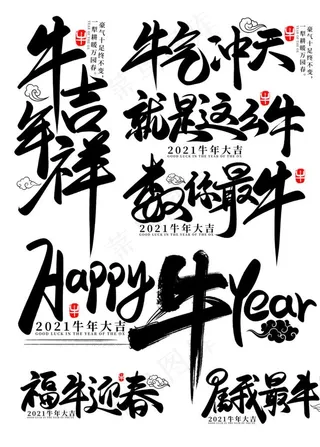 牛年吉祥
豪气十足终不变。
一犁耕暖万园春。
牛气冲天
豪气十足终不变。
一犁耕暖万园春。
就是这么牛
2021牛年大吉
GOOD LUCK IN THE YEAR OF THE OX
数你最牛
2021牛年大吉
GOOD LUCK IN THE YEAR OF THE OX
Happy 牛 Year
2021牛年大吉
GOOD LUCK IN THE YEAR OF THE OX
福牛迎春
2021牛年大吉
属我最牛
2021牛年大吉